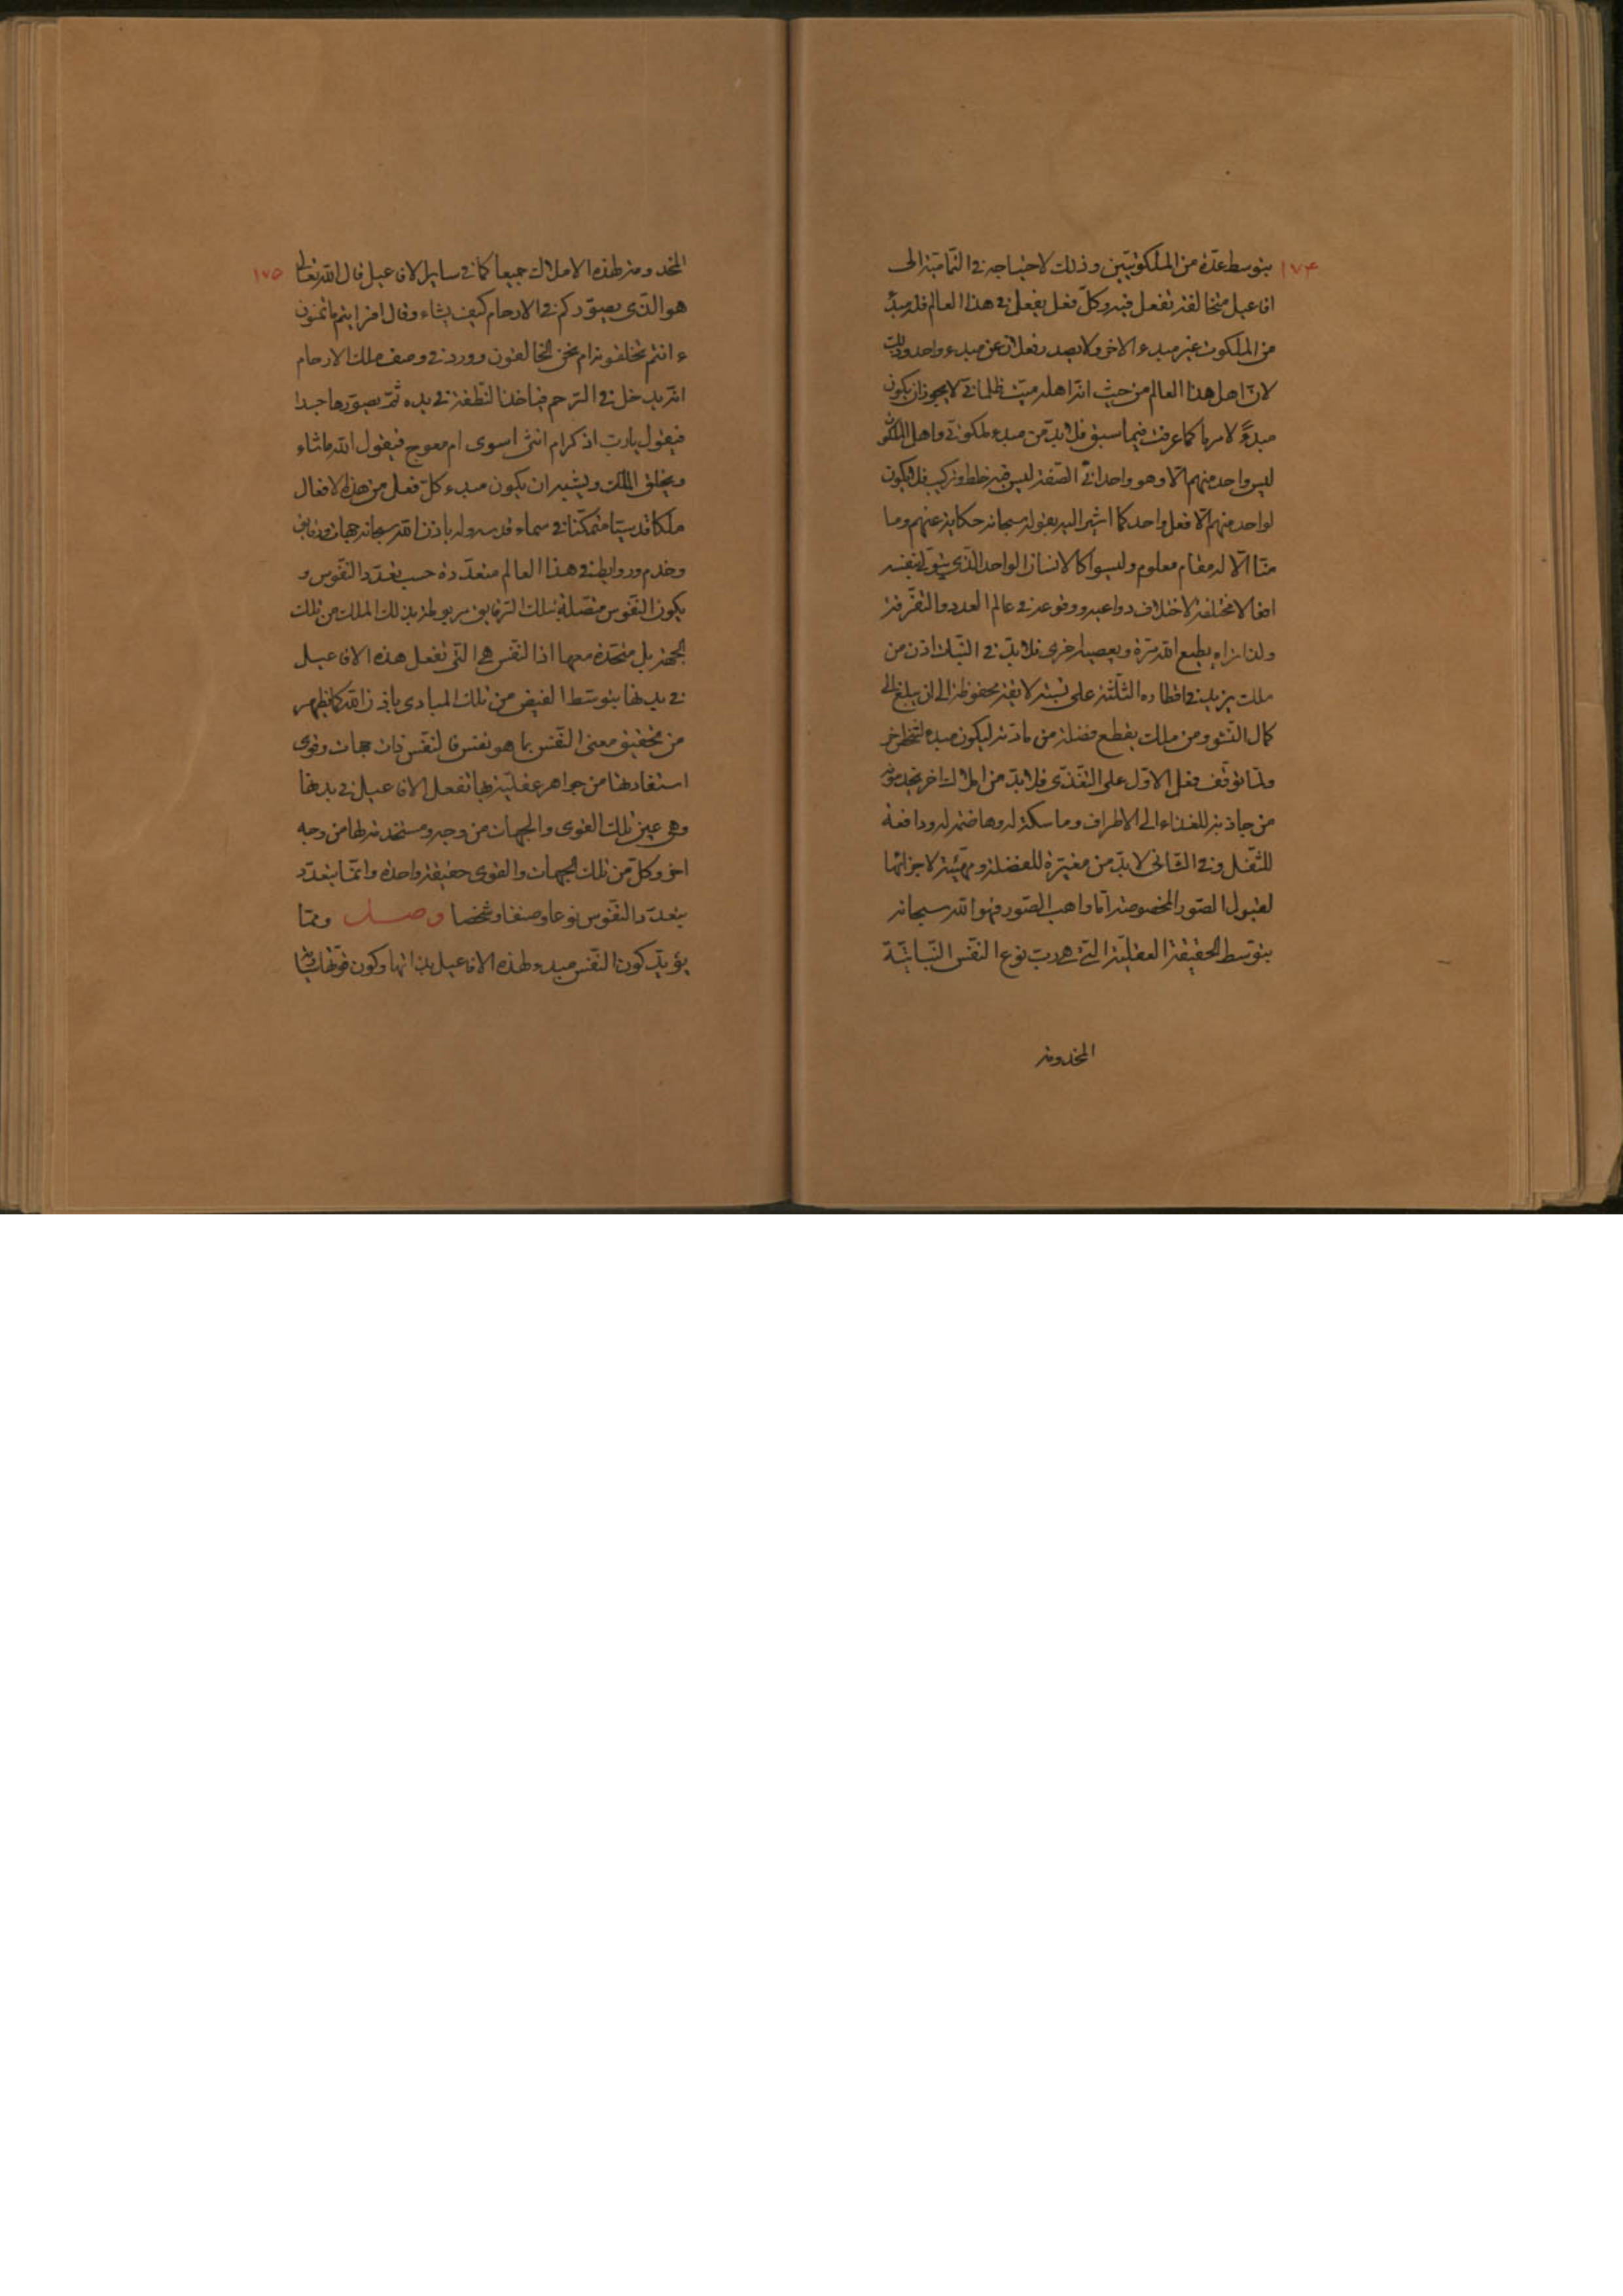 ١٧٤
بتوسط عدّة من الملكوتيّين وذلك لاحتياجه في التماميّة الى
افاعيل متخالفة تفعل فيه وكلّ فعل يفعل في هذا العالم فله مبدء
من الملكوت غير مبدء الاخر ولا يصدر فعلان عن مبدء واحد وذلك
لانّ اهل هذا العالم من حيث انّه اهله ميّت ظلمانيّ لا يجوز ان يكون
مبدءً لامر ما كما عرفت فيما سبق فلابدّ من مبدء ملكوتيّ واهل الملكوت
ليس واحد منهم الّا وهو واحدانيّ الصّفة ليس فيه خلط وتركيب فلا يكون
لواحد منهم الّا فعل واحد كما اشير اليه بقوله سبحانه حكاية عنهم وما
منّا الّا له مقام معلوم وليسوا كالانسان الواحد الّذي يتولّى بنفسه
افعالا مختلفة لاختلاف دواعيه ووقوعه في عالم العدد والتفرقة
ولذا تراه يطيع الله مرّة ويعصيه اخرى فلابدّ في النّبات اذن من
ملك يزيد في اقطاره الثلثة على نسبة لايقة محفوظة الى ان يبلغ الى
كمال النشو ومن ملك يقطع فضلة من مادّته ليكون مبدء لشخص اخر
ولمّا توقّف فعل الاوّل على التغذّي فلابدّ من املاك اخر يخدمونه
من جاذبة للغذاء الى الاطراف وماسكة له وهاضمة له ودافعة
للثّفل وفي الثّاني لابدّ من مغيّرة للفضلة ومهيّئة لاجزائها
لقبول الصّور المخصوصة امّا واهب الصّور فهو الله سبحانه
بتوسّط الحقيقة العقليّة الّتي هي ربّ نوع النّفس النّباتيّة
المخدومة
١٧٥
المخدومة لهذه الاملاك جميعا كما في ساير الافاعيل قال الله تعالى
هو الّذي يصوّركم في الارحام كيف يشاء وقال افرايتم ما تمنون
ءانتم تخلقونه ام نحن الخالقون وورد في وصف ملك الارحام
انّه يدخل في الرّحم فياخذ النّطفة في يده ثمّ يصوّرها جسدا
فيقول يا ربّ اذكر ام انثى اسوى ام معوج فيقول الله ما شاء
ويخلق الملك ويشبه ان يكون مبدء كلّ فعل من هذه الافعال
ملكا قدسيّا متمكّنا في سماء قدسه وله باذن الله سبحانه جهات ورقايق
وخدم وروابط في هذا العالم متعدّدة حسب تعدّد النّفوس و
يكون النّفوس متّصلة بتلك الرّقايق مربوطة بذلك الملك من تلك
الجهة بل متّحدة معها اذ النّفس هي الّتي تفعل هذه الافاعيل
في بدنها بتوسّط الفيض من تلك المبادي باذن الله كما يظهر
من تحقيق معنى النّفس بما هو نفس فالنّفس ذات جهات وقوى
استفادتها من جواهر عقليّة بها تفعل الافاعيل في بدنها
وهي عين تلك القوى والجهات من وجه ومستخدمة لها من وجه
اخر وكلّ من تلك الجهات والقوى حقيقة واحدة وانّما يتعدّد
بتعدّد النّفوس نوعا وصنفا وشخصا وصل وممّا
يؤيّد كون النّفس مبدء لهذه الافاعيل بذاتها وكون قوّتها سارية